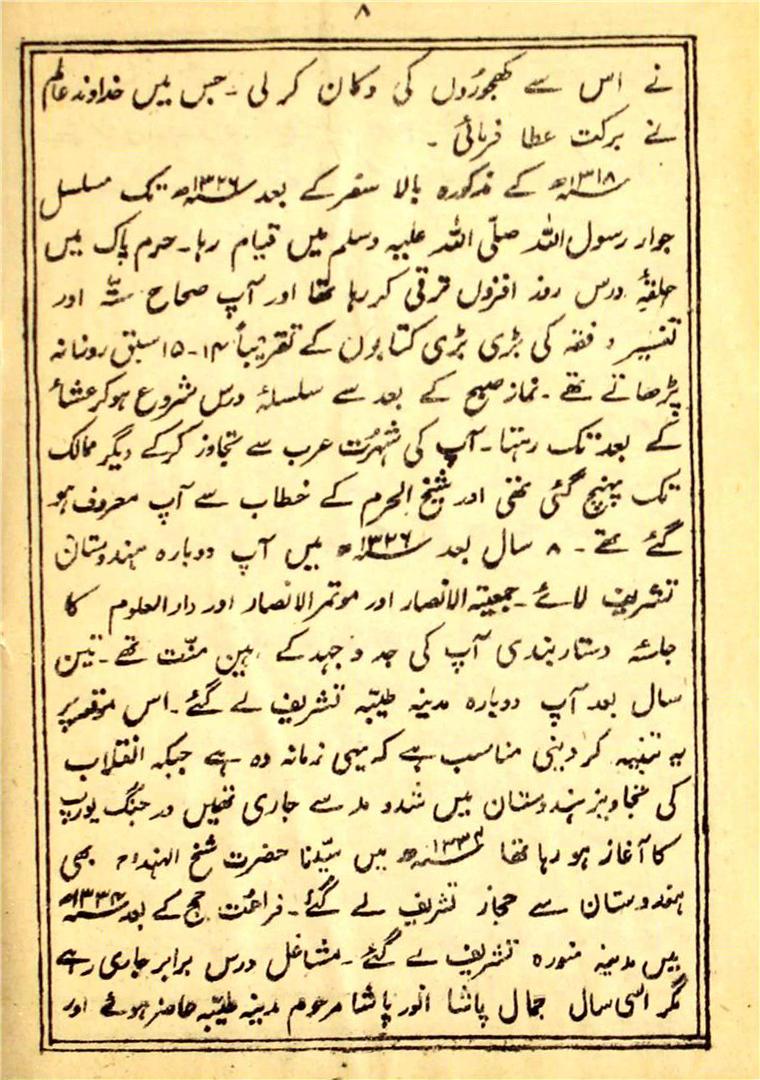 ۸
نے اس سے کھجوروں کی دکان کر لی ۔ جس میں خداوند عالم
نے برکت عطا فرمائی ۔
۱۳۱۸ھ کے مذکورہ بالا سفر کے بعد ۱۳۲۶ھ تک مسلسل
جوار رسول اللہ صلّی اللہ علیہ وسلم میں قیام رہا۔ حرم پاک میں
حلقۂ درس روز افزوں ترقی کر رہا تھا اور آپ صحاح ستّہ اور
تفسیر و فقہ کی بڑی بڑی کتابوں کے تقریباً ۱۴-۱۵ سبق روزانہ
پڑھاتے تھے ۔ نماز صبح کے بعد سے سلسلۂ درس شروع ہوکر عشاءٔ
کے بعد تک رہتا ۔ آپ کی شہرت عرب سے تجاوز کرکے دیگر ممالک
تک پہنچ گئی تھی اور شیخ الحرم کے خطاب سے آپ معروف ہو
گئے تھے ۔ ۸ سال بعد ۱۳۲۶ھ میں آپ دوبارہ ہندوستان
تشریف لائے ۔ جمعیۃ الانصار اور موتمر الانصار اور دارالعلوم کا
جلسۂ دستار بندی آپ کی جد و جہد کے رہین منّت تھے ۔ تین
سال بعد آپ دوبارہ مدینہ طیّبہ تشریف لے گئے ۔ اس موقعہ پر
یہ تنبیہ کر دینی مناسب ہے کہ یہی زمانہ وہ ہے جبکہ انقلاب
کی تجاویز ہندوستان میں شد و مد سے جاری تھیں اور جنگ یورپ
کا آغاز ہو رہا تھا میں سیّدنا حضرت شیخ الہندؒ بھی
ہندوستان سے حجاز تشریف لے گئے ۔ فراغت حج کے بعد ۱۳۳۴ھ
میں مدینہ منورہ تشریف لے گئے ۔ مشاغل درس برابر جاری رہے
مگر اسی سال جمال پاشا انور پاشا مرحوم مدینہ طیّبہ حاضر ہوئے اور